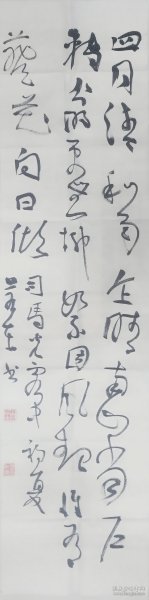 四月清和雨乍晴南山当户
轉分明更無柳絮因風起惟有
葵花向日傾 司馬光客中初夏
书